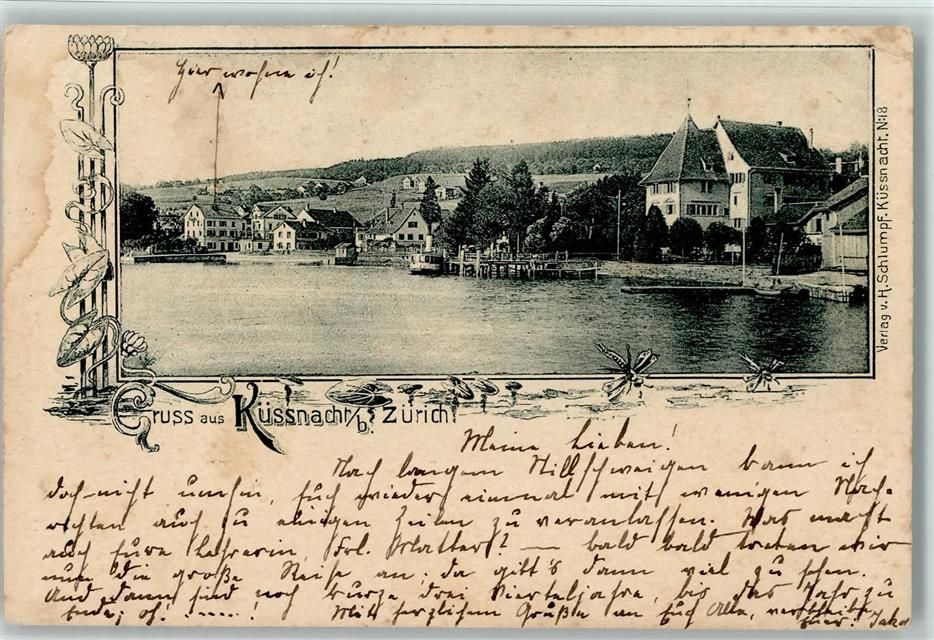 Hier wohne ich!
Verlag v. H. Schlumpf. Küssnacht. No: 18
Gruss aus Küssnacht/b. Zürich
Meine Lieben!
Nach langem Stillschweigen kann ich
doch nicht umhin, Euch wieder einmal mit wenigen Nach-
richten auch zu einigen Zeilen zu veranlassen. Was macht
auch Eure Lehrerin, Frl. Blatter? — bald bald treten wir
nun die große Reise an; da gibt's dann viel zu sehen.
Und dann sind noch kurze drei Vierteljahre, bis das Jahr zu
Ende; oh! .....! Mit herzlichen Grüßen an Euch Alle, verbleibe
Euer